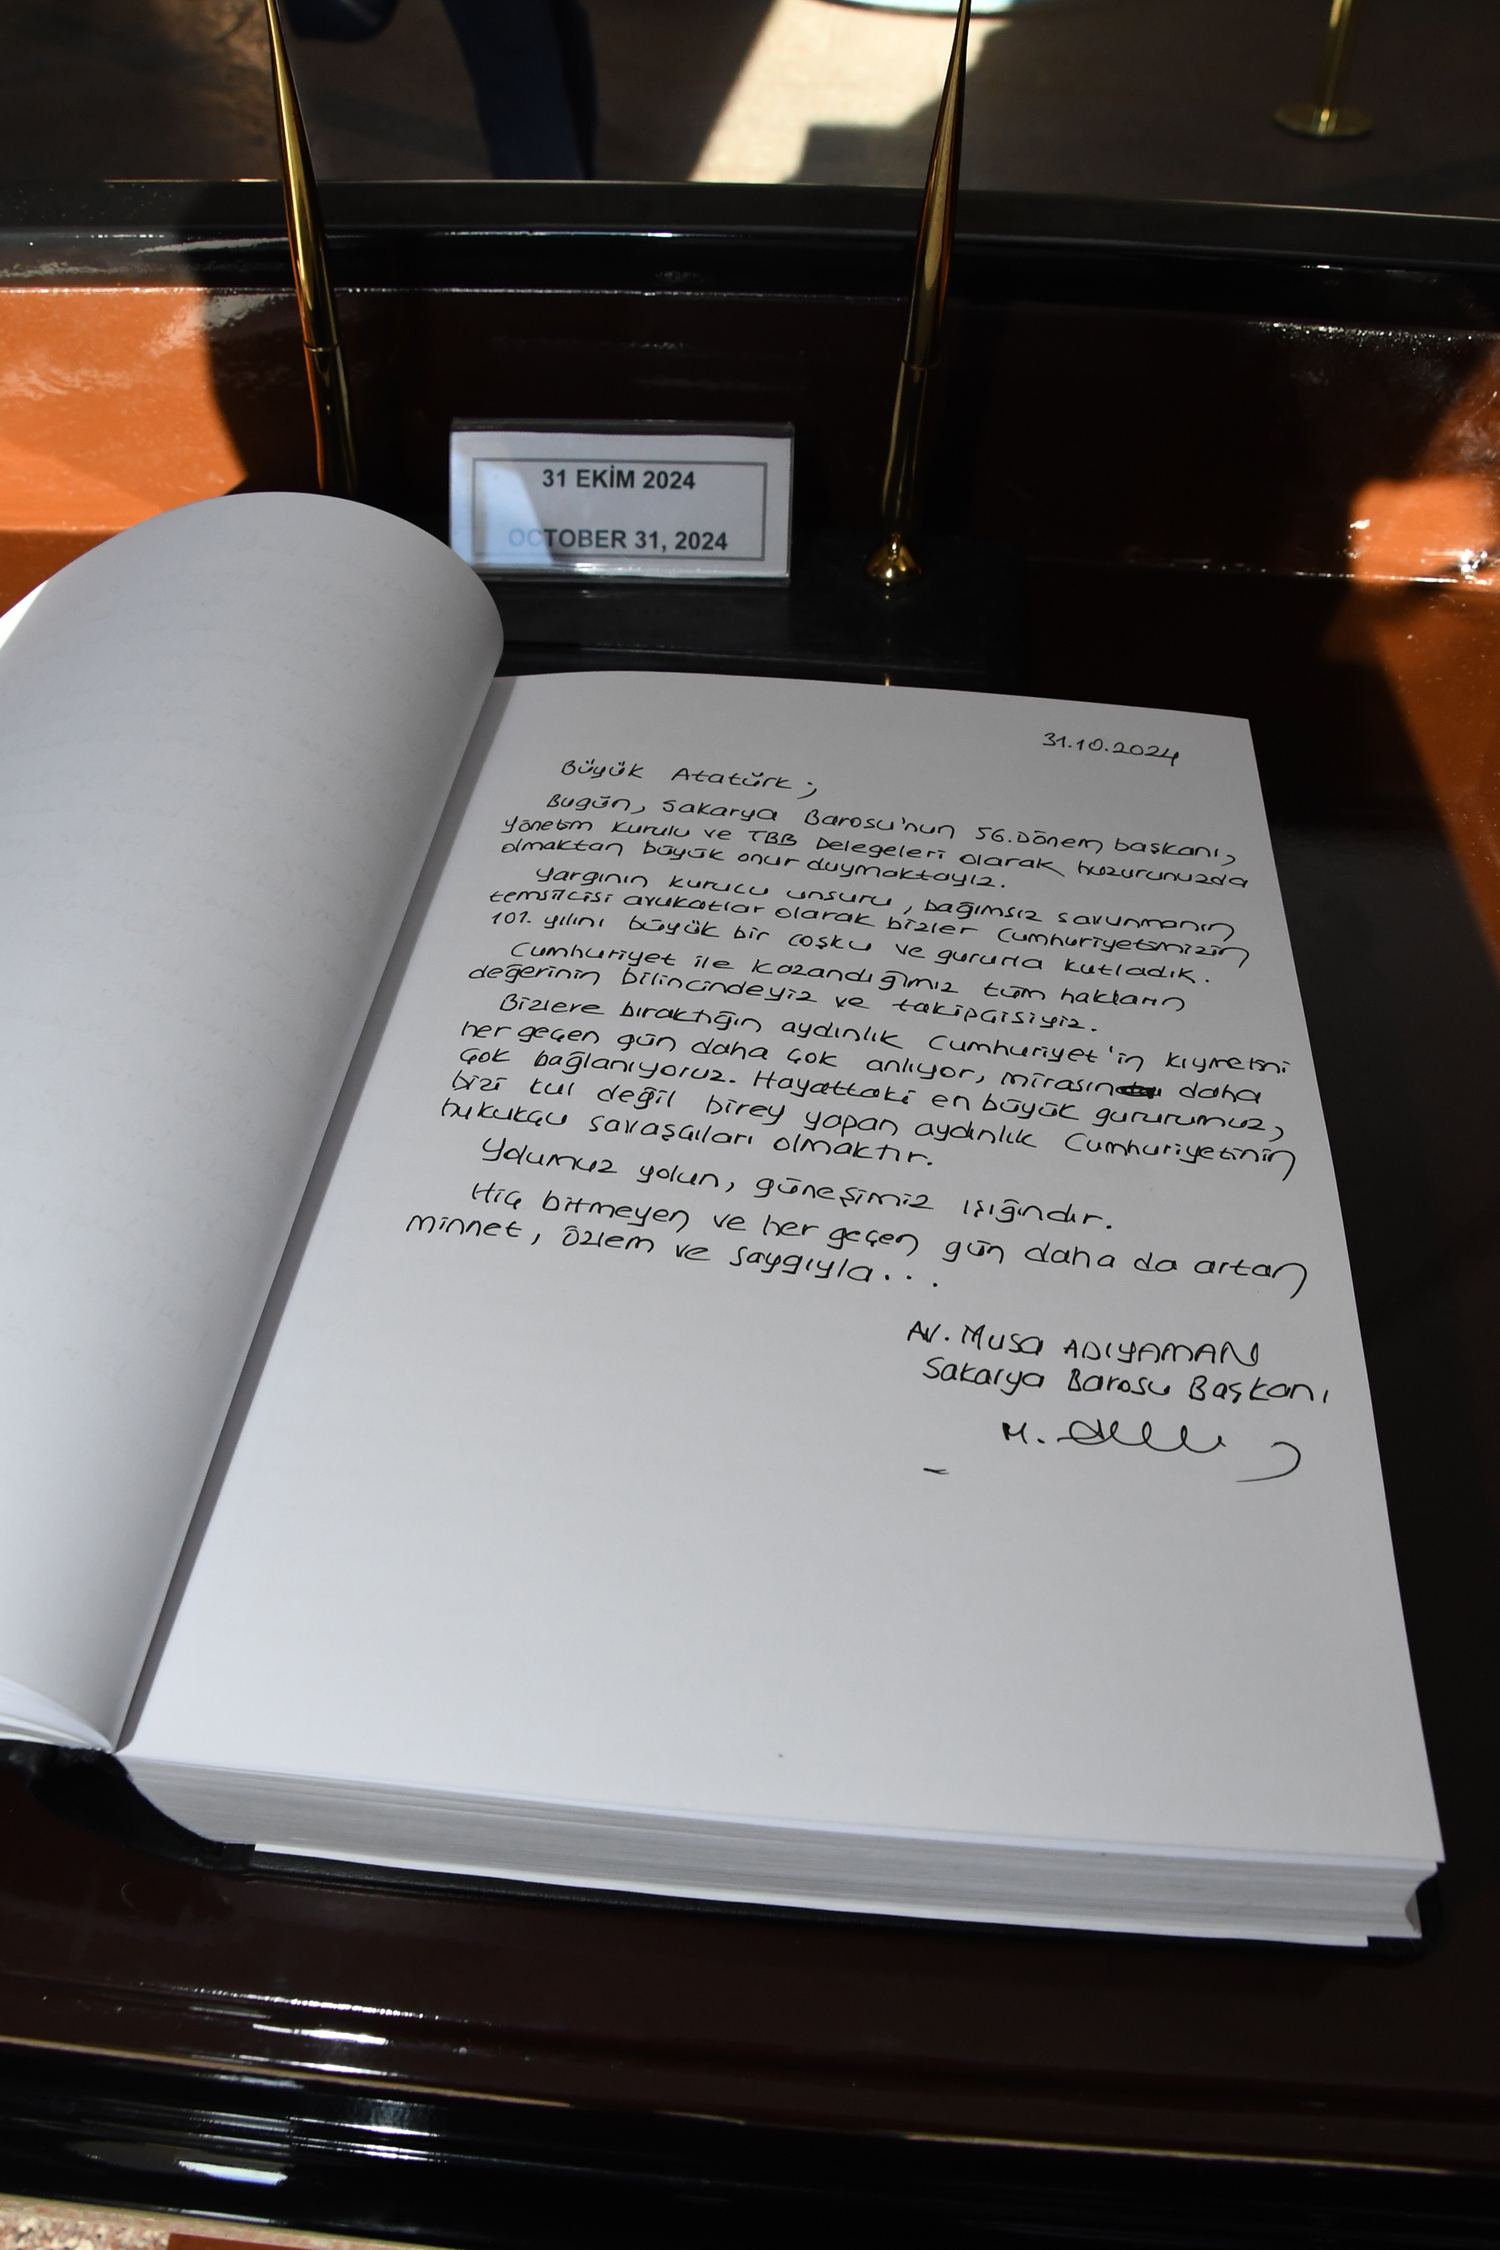 31 EKİM 2024
OCTOBER 31, 2024
31.10.2024
Büyük Atatürk;
Bugün, Sakarya Barosu'nun 56.Dönem başkanı,
Yönetim Kurulu ve TBB Delegeleri olarak huzurunuzda
olmaktan büyük onur duymaktayız.
Yargının kurucu unsuru, bağımsız savunmanın
temsilcisi avukatlar olarak bizler Cumhuriyetimizin
101. yılını büyük bir coşku ve gururla kutladık.
Cumhuriyet ile kazandığımız tüm hakların
değerinin bilincindeyiz ve takipçisiyiz.
Bizlere bıraktığın aydınlık Cumhuriyet'in kıymetini
her geçen gün daha çok anlıyor, mirasın daha
çok bağlanıyoruz. Hayattaki en büyük gururumuz,
bizi kul değil birey yapan aydınlık Cumhuriyetinin
hukukçu savaşçıları olmaktır.
Yolumuz yolun, güneşimiz ışığındır.
Hiç bitmeyen ve her geçen gün daha da artan
minnet, özlem ve saygıyla...
Av. Musa ADIYAMAN
Sakarya Barosu Başkanı
M.